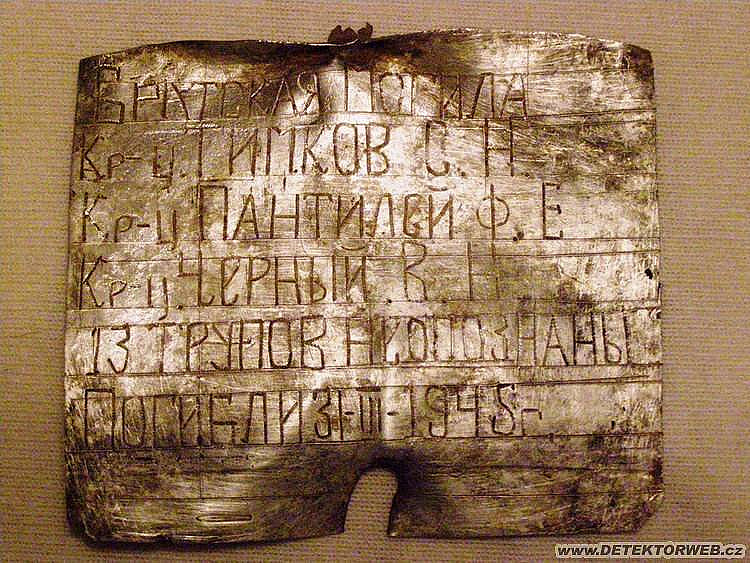 БРАТСКАЯ МОГИЛА
Кр-ц. ГИЦКОВ С. Н.
Кр-ц ПАНТИЛЕЙ Ф. Е
Кр-ц. ЧЕРНЫЙ. В. Н
13 ТРУПОВ НИОПОЗНАНЫ
ПОГИБЛИ 31-III-1945-
www.DETEKTORWEB.cz